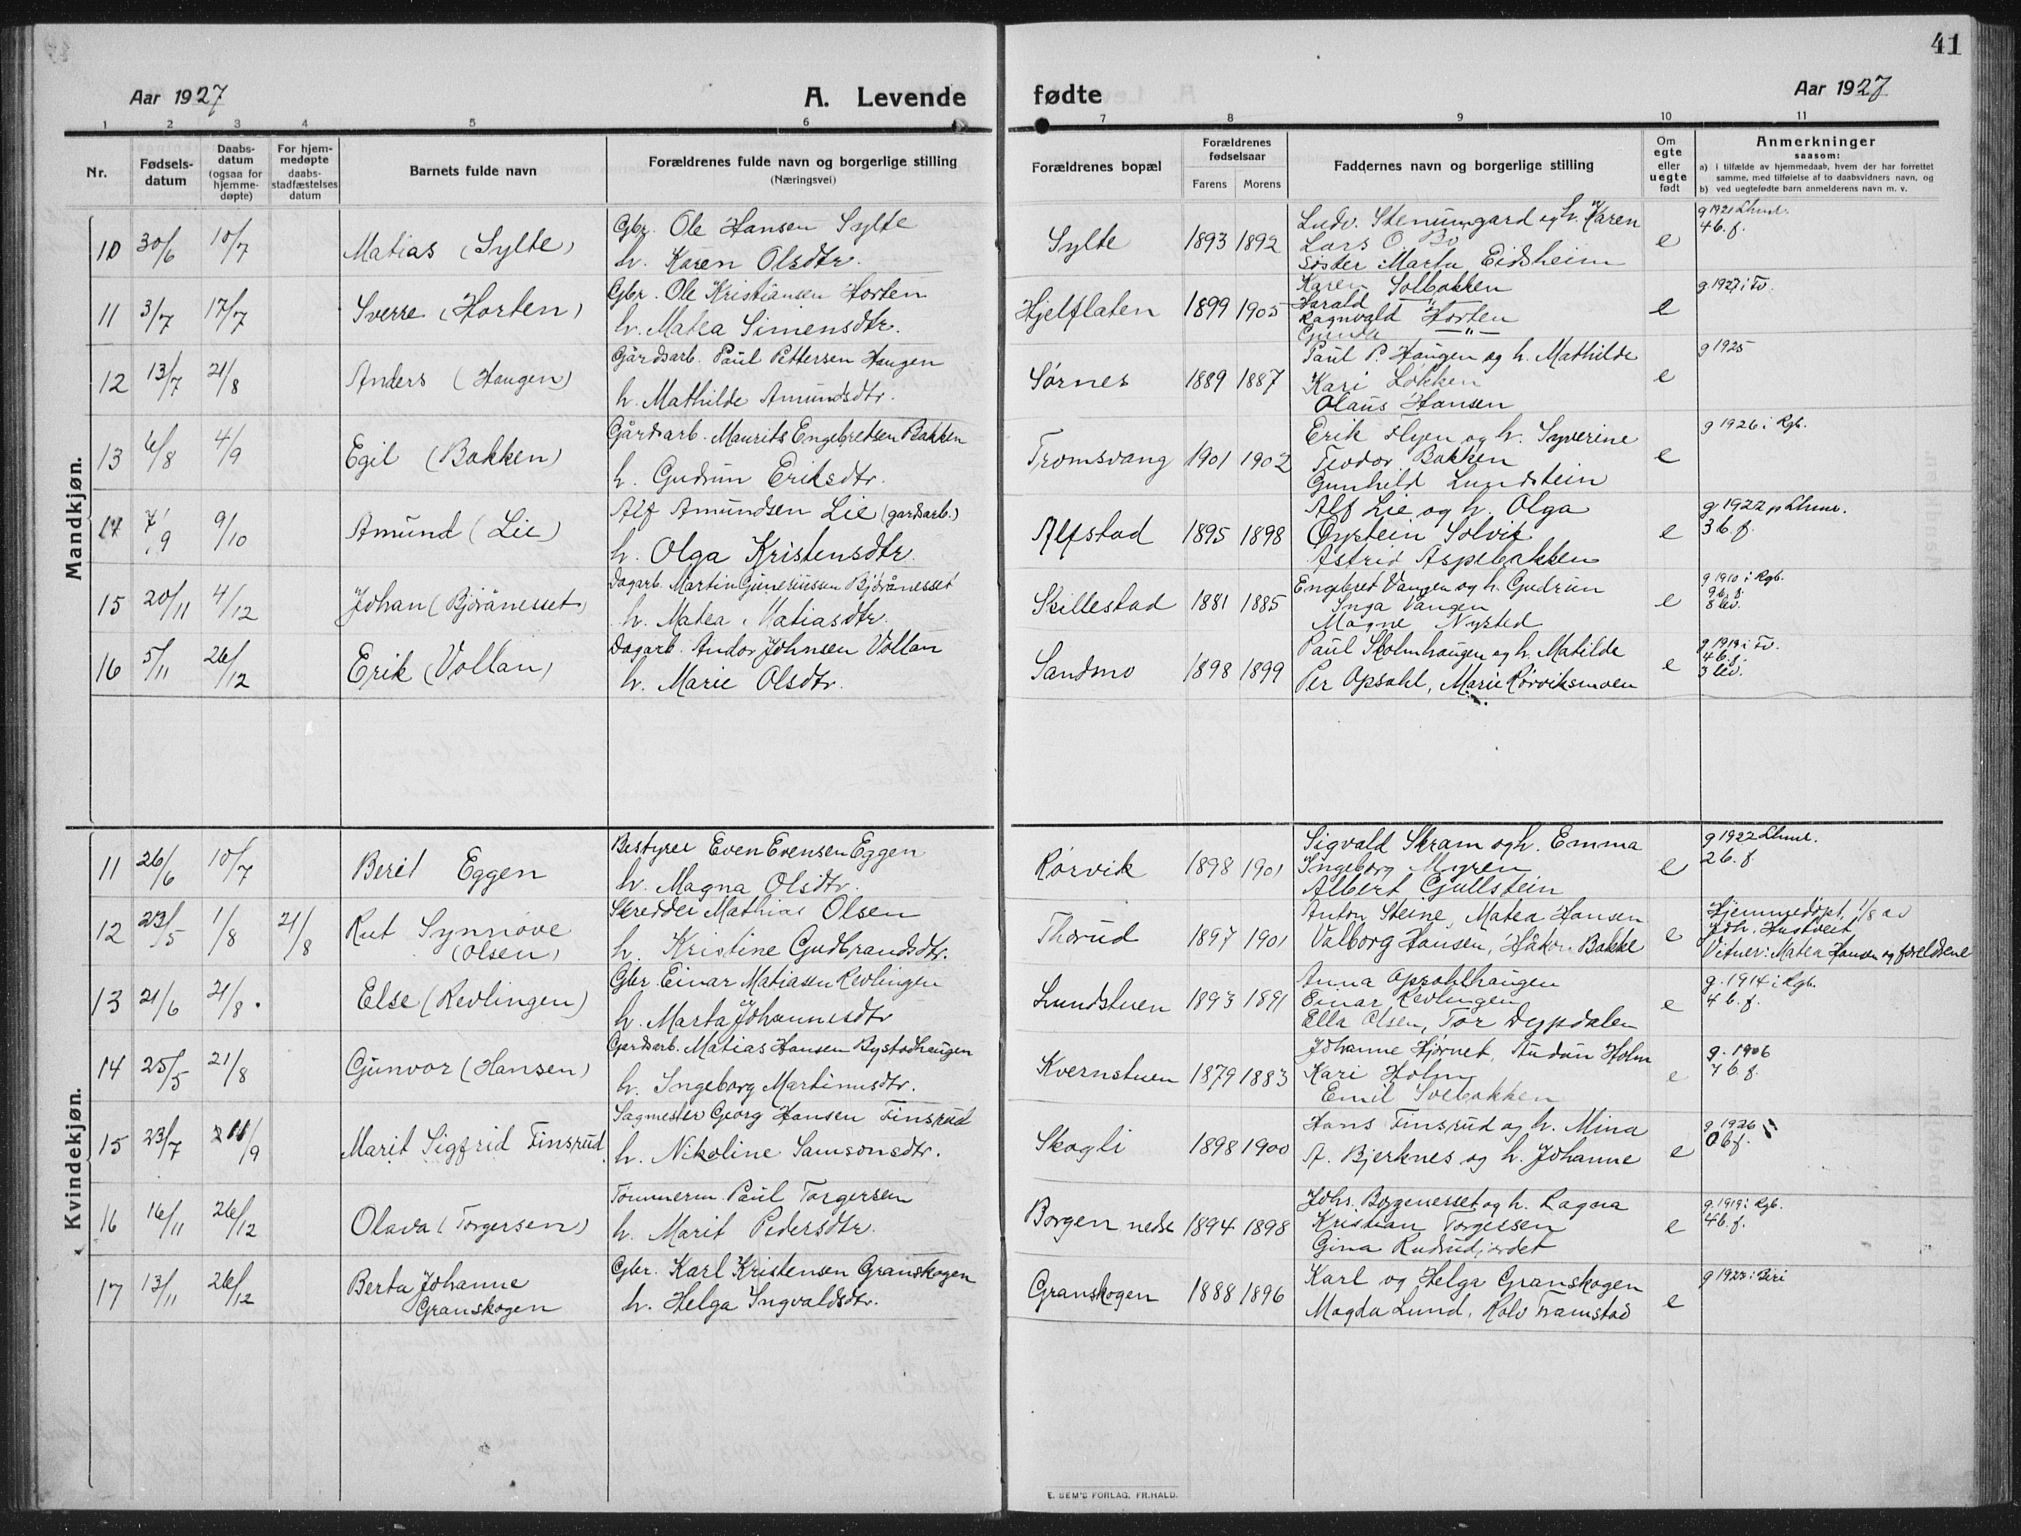 41
Aar 1927
A. Levende fødte
Aar 1927
1 2 3 4 5 6 7 8 9 10 11
Nr.
Fødselsdatum
Daabsdatum (ogsaa for hjemmedøpte)
For hjemmedøpte daabsstadfæstelses datum
Barnets fulde navn
Forældrenes fulde navn og borgerlige stilling
(Næringsvei)
Forældrenes bopæl
Forældrenes fødselsaar
Farens Morens
Faddernes navn og borgerlige stilling
Om egte eller uegte født
Anmerkninger
saasom:
a) i tilfælde av hjemmedaab, hvem der har forrettet samme, med tilføielse af to daabsvidners navn, og
b) ved uegtefødte barn anmelderens navn m. v.
Mandkjøn.
10 30/6 10/7 Matias (Sylte) Gbr. Ole Hansen Sylte
h. Karen Olsdtr. Sylte 1893 1892 Ludv. Stenumgard og h. Karen
Lars O. Bø
Søster Marta Eidsheim e g 1921 Lhmr.
4 b. f.
11 3/7 17/7 Sverre (Horten) Gbr. Ole Kristiansen Horten
h. Matea Simensdtr. Hjelflaten 1899 1905 Karen Solbakken
Harald —"—
Ragnvald Horten
Gunda —"— e g 1927 i Fv.
12 13/7 21/8 Anders (Haugen) Gårdsarb. Paul Pettersen Haugen
h. Mathilde Amundsdtr. Sørnes 1889 1887 Paul P. Haugen og h. Mathilde
Kari Løkken
Olaus Hansen e g 1925
13 6/8 4/9 Egil (Bakken) Gårdsarb. Maurits Engebretsen Bakken
h. Gudrun Eriksdtr. Tromsvang 1901 1902 Erik Flyen og h. Syverine
Teodor Bakken
Gunhild Lundstein e g 1926 i Rgb.
14 7/9 9/10 Amund (Lie) Alf Amundsen Lie (gardsarb.)
h. Olga Kristensdtr. Alfstad 1895 1898 Alf Lie og h. Olga
Øystein Solvik
Astrid Aspebakken e g 1922 p Lhmr.
3 b. f.
15 20/11 4/12 Johan (Bjørånesset) Dagarb. Martin Guneriussen Bjørånesset
h. Matea Matiasdtr. Skillestad 1881 1885 Engebret Vangen og h. Gudrun
Inga Vangen
Magne Nysted e g 1910 i Rgb.
9 b. f.
8 lev.
16 5/11 26/12 Erik (Vollan) Dagarb. Andor Johnsen Vollan
h. Marie Olsdtr. Sandmo 1898 1899 Paul Skolmhaugen og h. Matilde
Per Opsahl, Marie Rørviksmoen e g 1919 i Fv.
4 b. f.
3 lev.
Kvindekjøn.
11 26/6 10/7 Berit Eggen Bestyrer Even Evensen Eggen
h. Magna Olsdtr. Rørvik 1898 1901 Sigvald Skram og h. Emma
Ingeborg Myren
Albert Gullstein e g 1922 Lhmr.
2 b. f.
12 23/5 1/8 21/8 Rut Synnøve
(Olsen) Skredder Mathias Olsen
h. Kristine Gudbrandsdtr. Thorud 1897 1901 Anton Steine, Matea Hansen
Valborg Hansen, Håkon Bakke e Hjemmedøpt 1/8 av
Joh. Hustveit
Vitner: Matea Hansen og foreldrene
13 21/6 21/8 Else (Revlingen) Gbr Einar Matiasen Revlingen
h. Marta Johannesdtr Lundstuen 1893 1891 Anna Opsahlhaugen
Einar Revlingen
Ella Olsen, Tor Dypdalen e g. 1914 i Rgb.
4 b. f.
14 25/5 21/8 Gunvor (Hansen) Gardsarb. Matias Hansen Bystadhaugen
h. Ingeborg Martinusdtr. Kvernstuen 1879 1883 Johanne Hjørnet, Audun Holm
Kari Holm
Emil Svebakken e g. 1906
7 b. f.
15 23/7 11/9 Marit Sigfrid Finsrud Sagmester Georg Hansen Finsrud
h. Nikoline Samsonsdtr. Skogli 1898 1900 Hans Finsrud og h. Mina
A. Bjerknes og h. Johanne e g 1926
0 b f.
16 16/11 26/12 Olava (Torgersen) Tømmerm. Paul Torgersen
h. Marit Pedersdtr. Borgen nedr 1894 1898 Johs. Borgenesset og h. Ragna
Kristian Torgersen
Gina Rudrudjordet e g. 1919 i Rgb.
4 b. f.
17 13/11 26/12 Berta Johanne
Granskogen Gbr. Karl Kristensen Granskogen
h. Helga Ingvaldsdtr. Granskogen 1888 1896 Karl og Helga Granskogen
Magda Lund, Rolv Framstad e g 1923 i Biri
E. SEM'S FORLAG, FR.HALD.